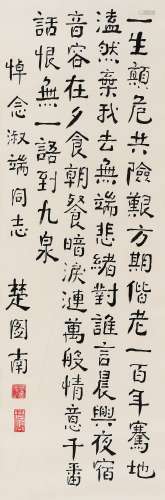 一生顛危共險艱方期偕老一百年驀地
溘然棄我去無端悲緒對誰言晨興夜宿
音容在夕食朝餐暗淚漣萬般情意千番
話恨無一語到九泉
悼念淑端同志
楚圖南